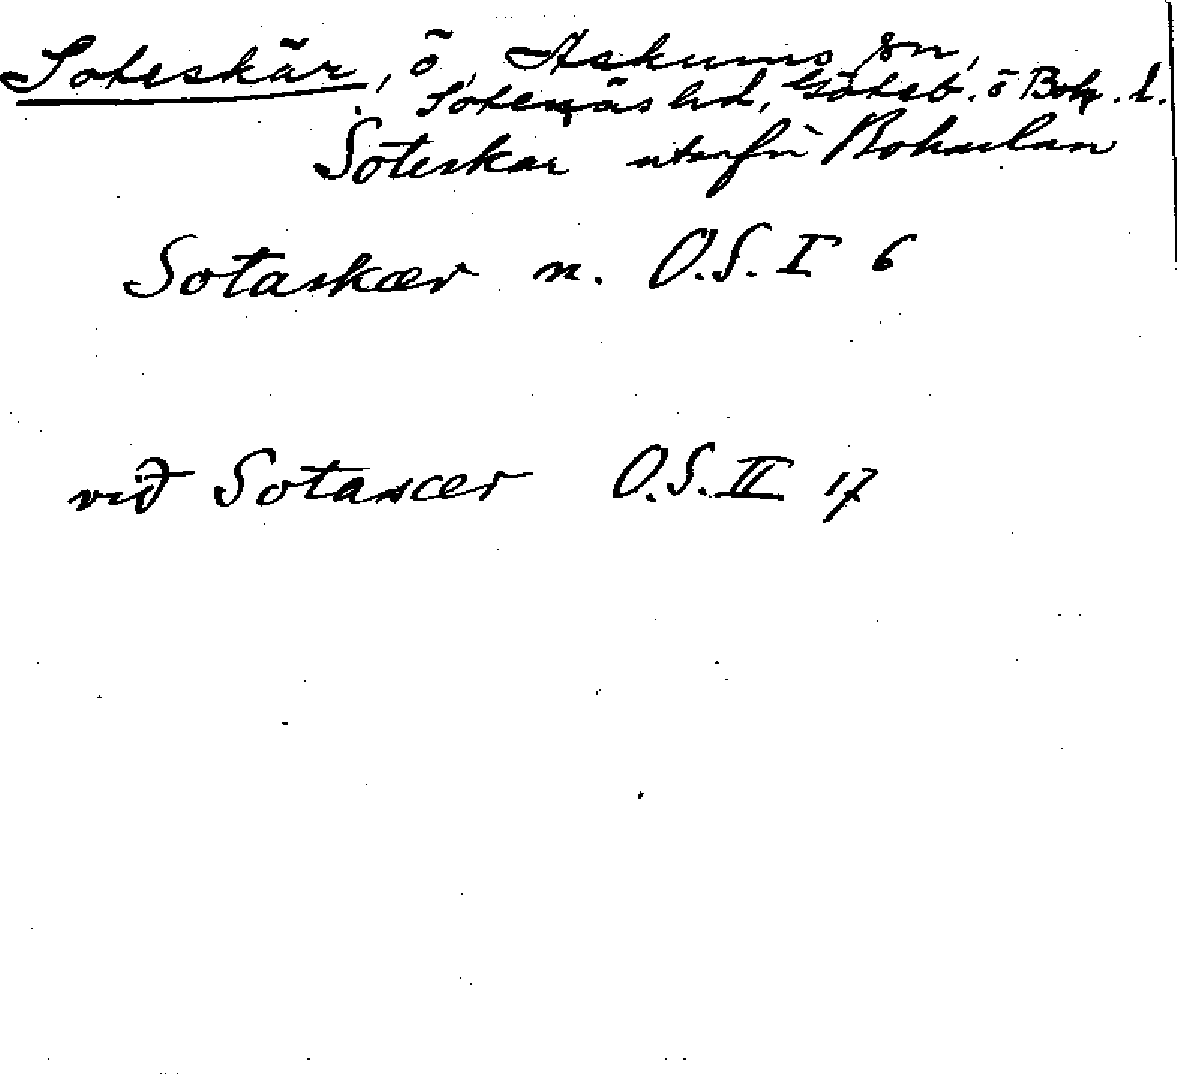 Soteskär, ö, Askums sn,
Sotenäs hd, Göteb. o Boh. l.
Soteskär utanför Bohuslän
Sotaskær n. O.S. I 6
við Sotascer O.S. II 17